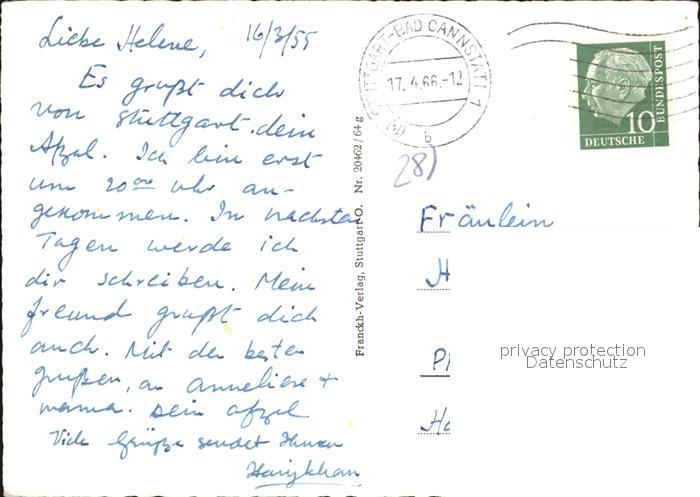 Liebe Helene, 16/3/55
Es grüßt dich
von Stuttgart. dein
Afzal. Ich bin erst
um 20⁰⁰ Uhr an-
gekommen. In nächsten
Tagen werde ich
dir schreiben. Mein
freund grüßt dich
auch. Mit den besten
grüßen, an Anneliese +
mama. Dein Afzal
Viele Grüße sendet Ihnen
Franckh-Verlag, Stuttgart-O. Nr. 20462/64 g
STUTTGART-BAD CANNSTATT 1
17.4.66.-12
b
28)
10
DEUTSCHE BUNDESPOST
Fräulein
H
Pl
Ha
privacy protection
Datenschutz